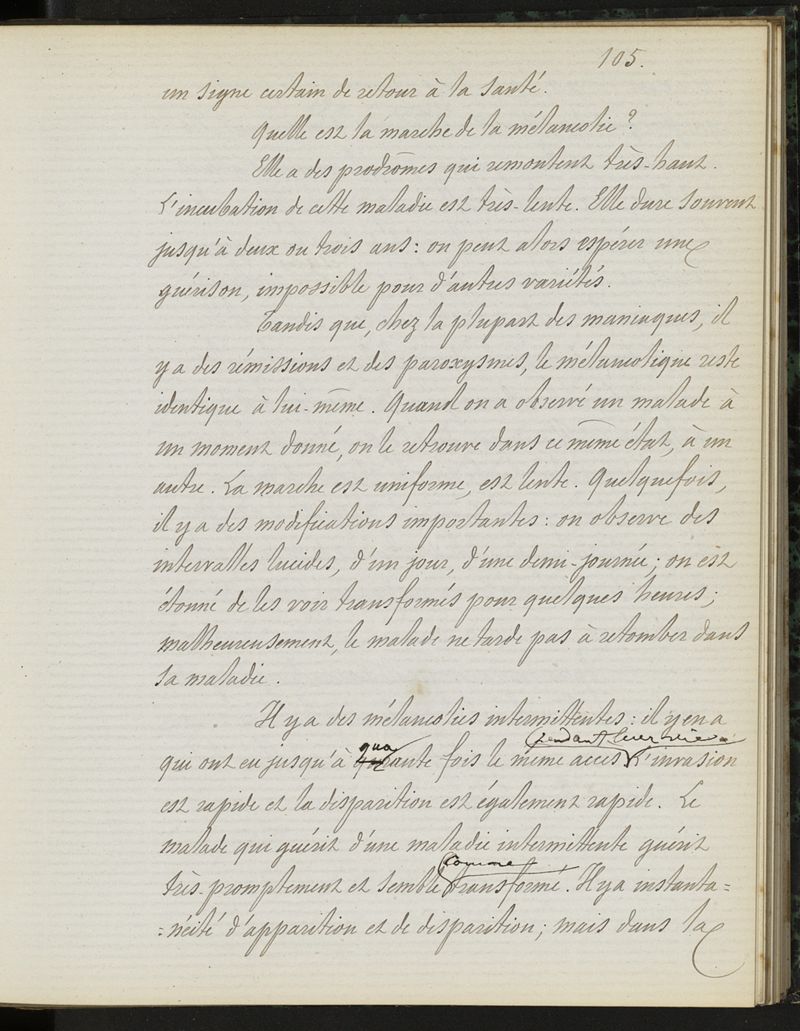 105.
un signe certain de retour à la santé.
Quelle est la marche de la mélancolie ?
Elle a des prodrômes qui remontent très-haut.
L'incubation de cette maladie est très-lente. Elle dure souvent
jusqu'à deux ou trois ans : on peut alors espérer une
guérison, impossible pour d'autres variétés.
Tandis que, chez la plupart des maniaques, il
y a des rémissions et des paroxysmes, le mélancolique reste
identique à lui-même. Quand on a observé un malade à
un moment donné, on le retrouve dans ce même état, à un
autre. La marche est uniforme, est lente. Quelquefois,
il y a des modifications importantes : on observe des
intervalles lucides, d'un jour, d'une demi-journée ; on est
étonné de les voir transformés pour quelques heures ;
malheureusement, le malade ne tarde pas à retomber dans
sa maladie.
Il y a des mélancolies intermittentes : il y en a
pendant leur vie
qui ont eu jusqu'à quarante fois le même accès. L'invasion
est rapide et la disparition est également rapide. Le
malade qui guérit d'une maladie intermittente guérit
comme
très-promptement et semble transformé. Il y a instanta=
=néité d'apparition et de disparition ; mais dans la